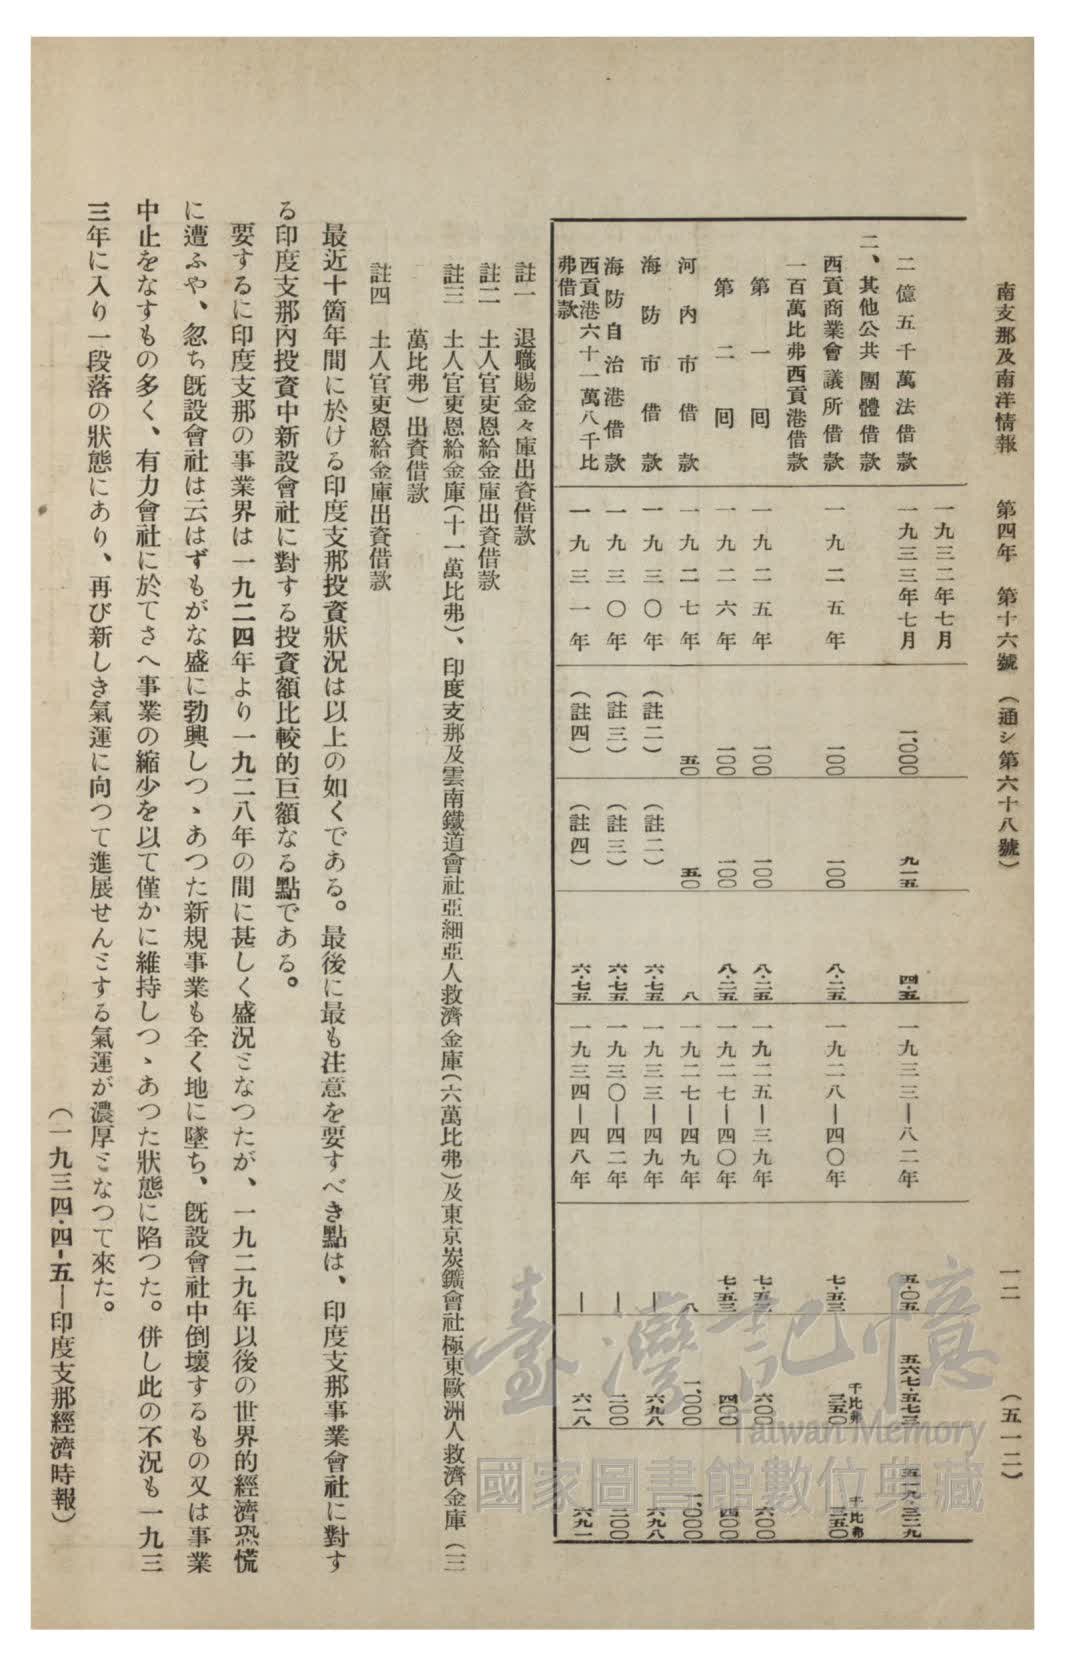 南支那及南洋情報　第四年　第十六號　（通シ第六十八號）　一二　（五一二）
一九三二年七月
二億五千萬法借款　一九三三年七月　一、〇〇〇　九一五　四・五　一九三三―八二年　五・〇五　五六七・五七三　五一九・三二九
二、其他公共團體借款
西貢商業會議所借款　一九二五年　一〇〇　一〇〇　八・二五　一九二八―四〇年　七・五三　千比弗　三五〇　千比弗　三五〇
一百萬比弗西貢港借款
第一囘　一九二五年　一〇〇　一〇〇　八・二五　一九二五―三九年　七・五三　六〇〇　六〇〇
第二囘　一九二六年　一〇〇　一〇〇　八・二五　一九二七―四〇年　七・五三　四〇〇　四〇〇
河內市借款　一九二七年　五〇　五〇　八　一九二七―四九年　八　一、〇〇〇　一、〇〇〇
海防市借款　一九三〇年　（註二）　（註二）　六・七五　一九三三―四九年　―　六九八　六九八
海防自治港借款　一九三〇年　（註三）　（註三）　六・七五　一九三〇―四二年　―　二〇〇　二〇〇
西貢港六十一萬八千比弗借款　一九三一年　（註四）　（註四）　六・七五　一九三四―四八年　―　六一八　六九一
註一　退職賜金々庫出資借款
註二　土人官吏恩給金庫出資借款
註三　土人官吏恩給金庫（十一萬比弗）、印度支那及雲南鐵道會社亞細亞人救濟金庫（六萬比弗）及東京炭鑛會社極東歐洲人救濟金庫（三
萬比弗）出資借款
註四　土人官吏恩給金庫出資借款
最近十箇年間に於ける印度支那投資狀況は以上の如くである。最後に最も注意を要すべき點は、印度支那事業會社に對す
る印度支那內投資中新設會社に對する投資額比較的巨額なる點である。
要するに印度支那の事業界は一九二四年より一九二八年の間に甚しく盛況となつたが、一九二九年以後の世界的經濟恐慌
に遭ふや、忽ち旣設會社は云はずもがな盛に勃興しつゝあつた新規事業も全く地に墜ち、旣設會社中倒壞するもの又は事業
中止をなすもの多く、有力會社に於てさへ事業の縮少を以て僅かに維持しつゝあつた狀態に陷つた。併し此の不況も一九三
三年に入り一段落の狀態にあり、再び新しき氣運に向つて進展せんとする氣運が濃厚となつて來た。
（一九三四・四・五―印度支那經濟時報）
臺灣記憶
Taiwan Memory
國家圖書館數位典藏